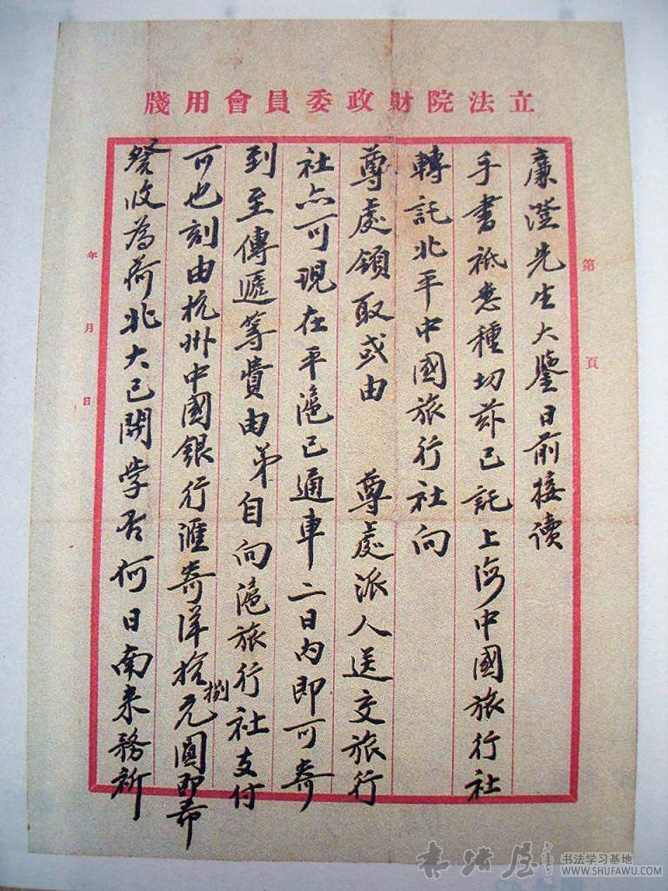 立法院財政委員會用牋
第 頁
廉澄先生大鑒日前接讀
手書祗悉種切茲已託上海中國旅行社
轉託北平中國旅行社向
尊處領取或由 尊處派人送交旅行
社亦可現在平滬已通車二日內即可寄
到至傳遞等費由弟自向滬旅行社支付
可也刻由杭州中國銀行滙寄洋拾捌元圓即希
詧收為荷北大已開學否何日南來務祈
年 月 日
书法屋
书法学习基地
WWW.SHUFAWU.COM